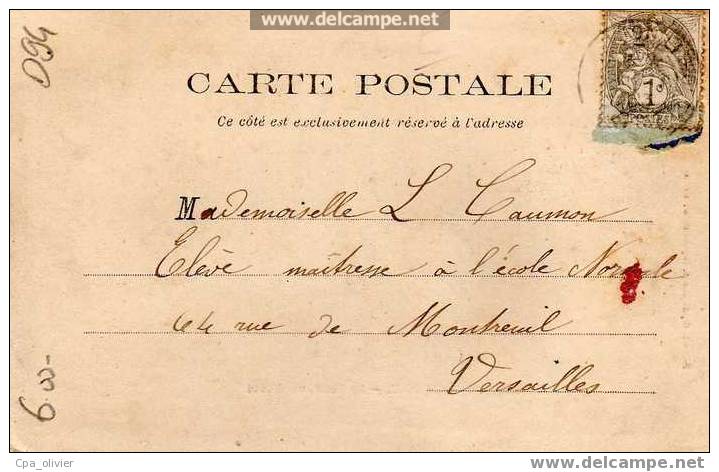 www.delcampe.net
D94
1c
POSTES
CARTE POSTALE
Ce côté est exclusivement réservé à l'adresse
Mademoiselle L Caumon
Elève maîtresse à l'école Normale
64 rue de Montreuil
Versailles
6.00-
Cpa_olivier
www.delcampe.net